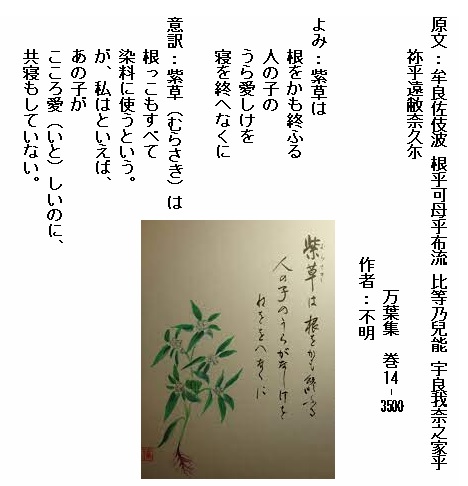 原文：牟良佐伎波 根乎可母乎布流 比等乃兒能 宇良我奈之家乎
祢乎遠敝奈久尓
万葉集 巻14-3500
作者：不明
よみ：紫草は
根をかも終ふる
人の子の
うら愛しけを
寝を終へなくに
意訳：紫草（むらさき）は
根っこもすべて
染料に使うという。
が、私はといえば、
あの子が
こころ愛（いと）しいのに、
共寝もしていない。
紫草は 根をかも終ふる
人の子のうらがなしけを
ねををへなくに